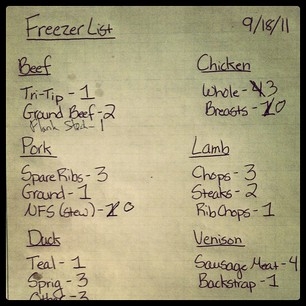 Freezer List
9/18/11
Beef
Tri-Tip - 1
Ground Beef - 2
Flank Steak - 1
Chicken
Whole - 3
Breasts - 0
Pork
Spare Ribs - 3
Ground - 1
NFS (stew) - 0
Lamb
Chops - 3
Steaks - 2
Rib Chops - 1
Duck
Teal - 1
Sprig - 3
Other - 3
Venison
Sausage Meat - 4
Backstrap - 1